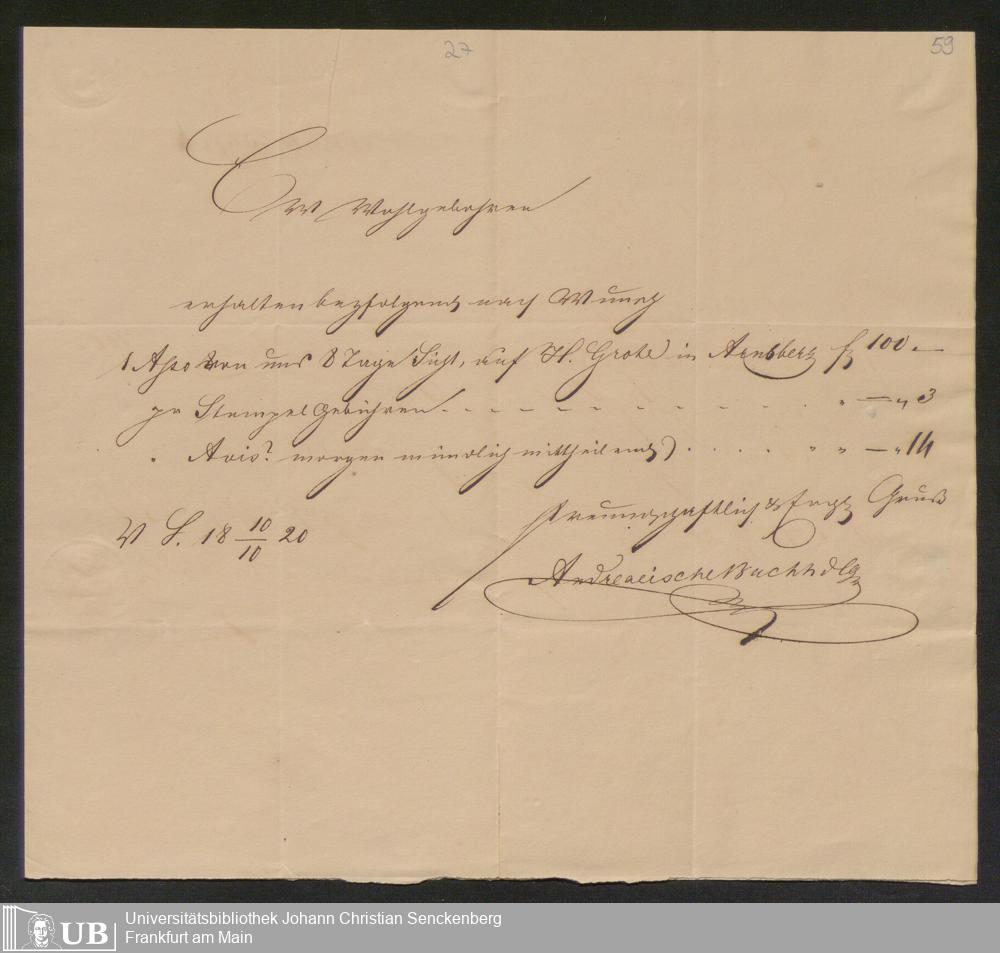 27
59
Ew Wohlgebohren
erhalten beyfolgend nach Wunsch
1 von uns 8 Tage Sicht, auf H. Grote in Arnsberg f 100 —
pr Stempelgebühren - - - - - - - - " — " 3
" Aviso morgen mündlich mittheilend) . . . . " " — " 14
freundschaftlich & Gruß
V S. 18 10/10 20
Andreaeische Buchhdlg
UB
Universitätsbibliothek Johann Christian Senckenberg
Frankfurt am Main